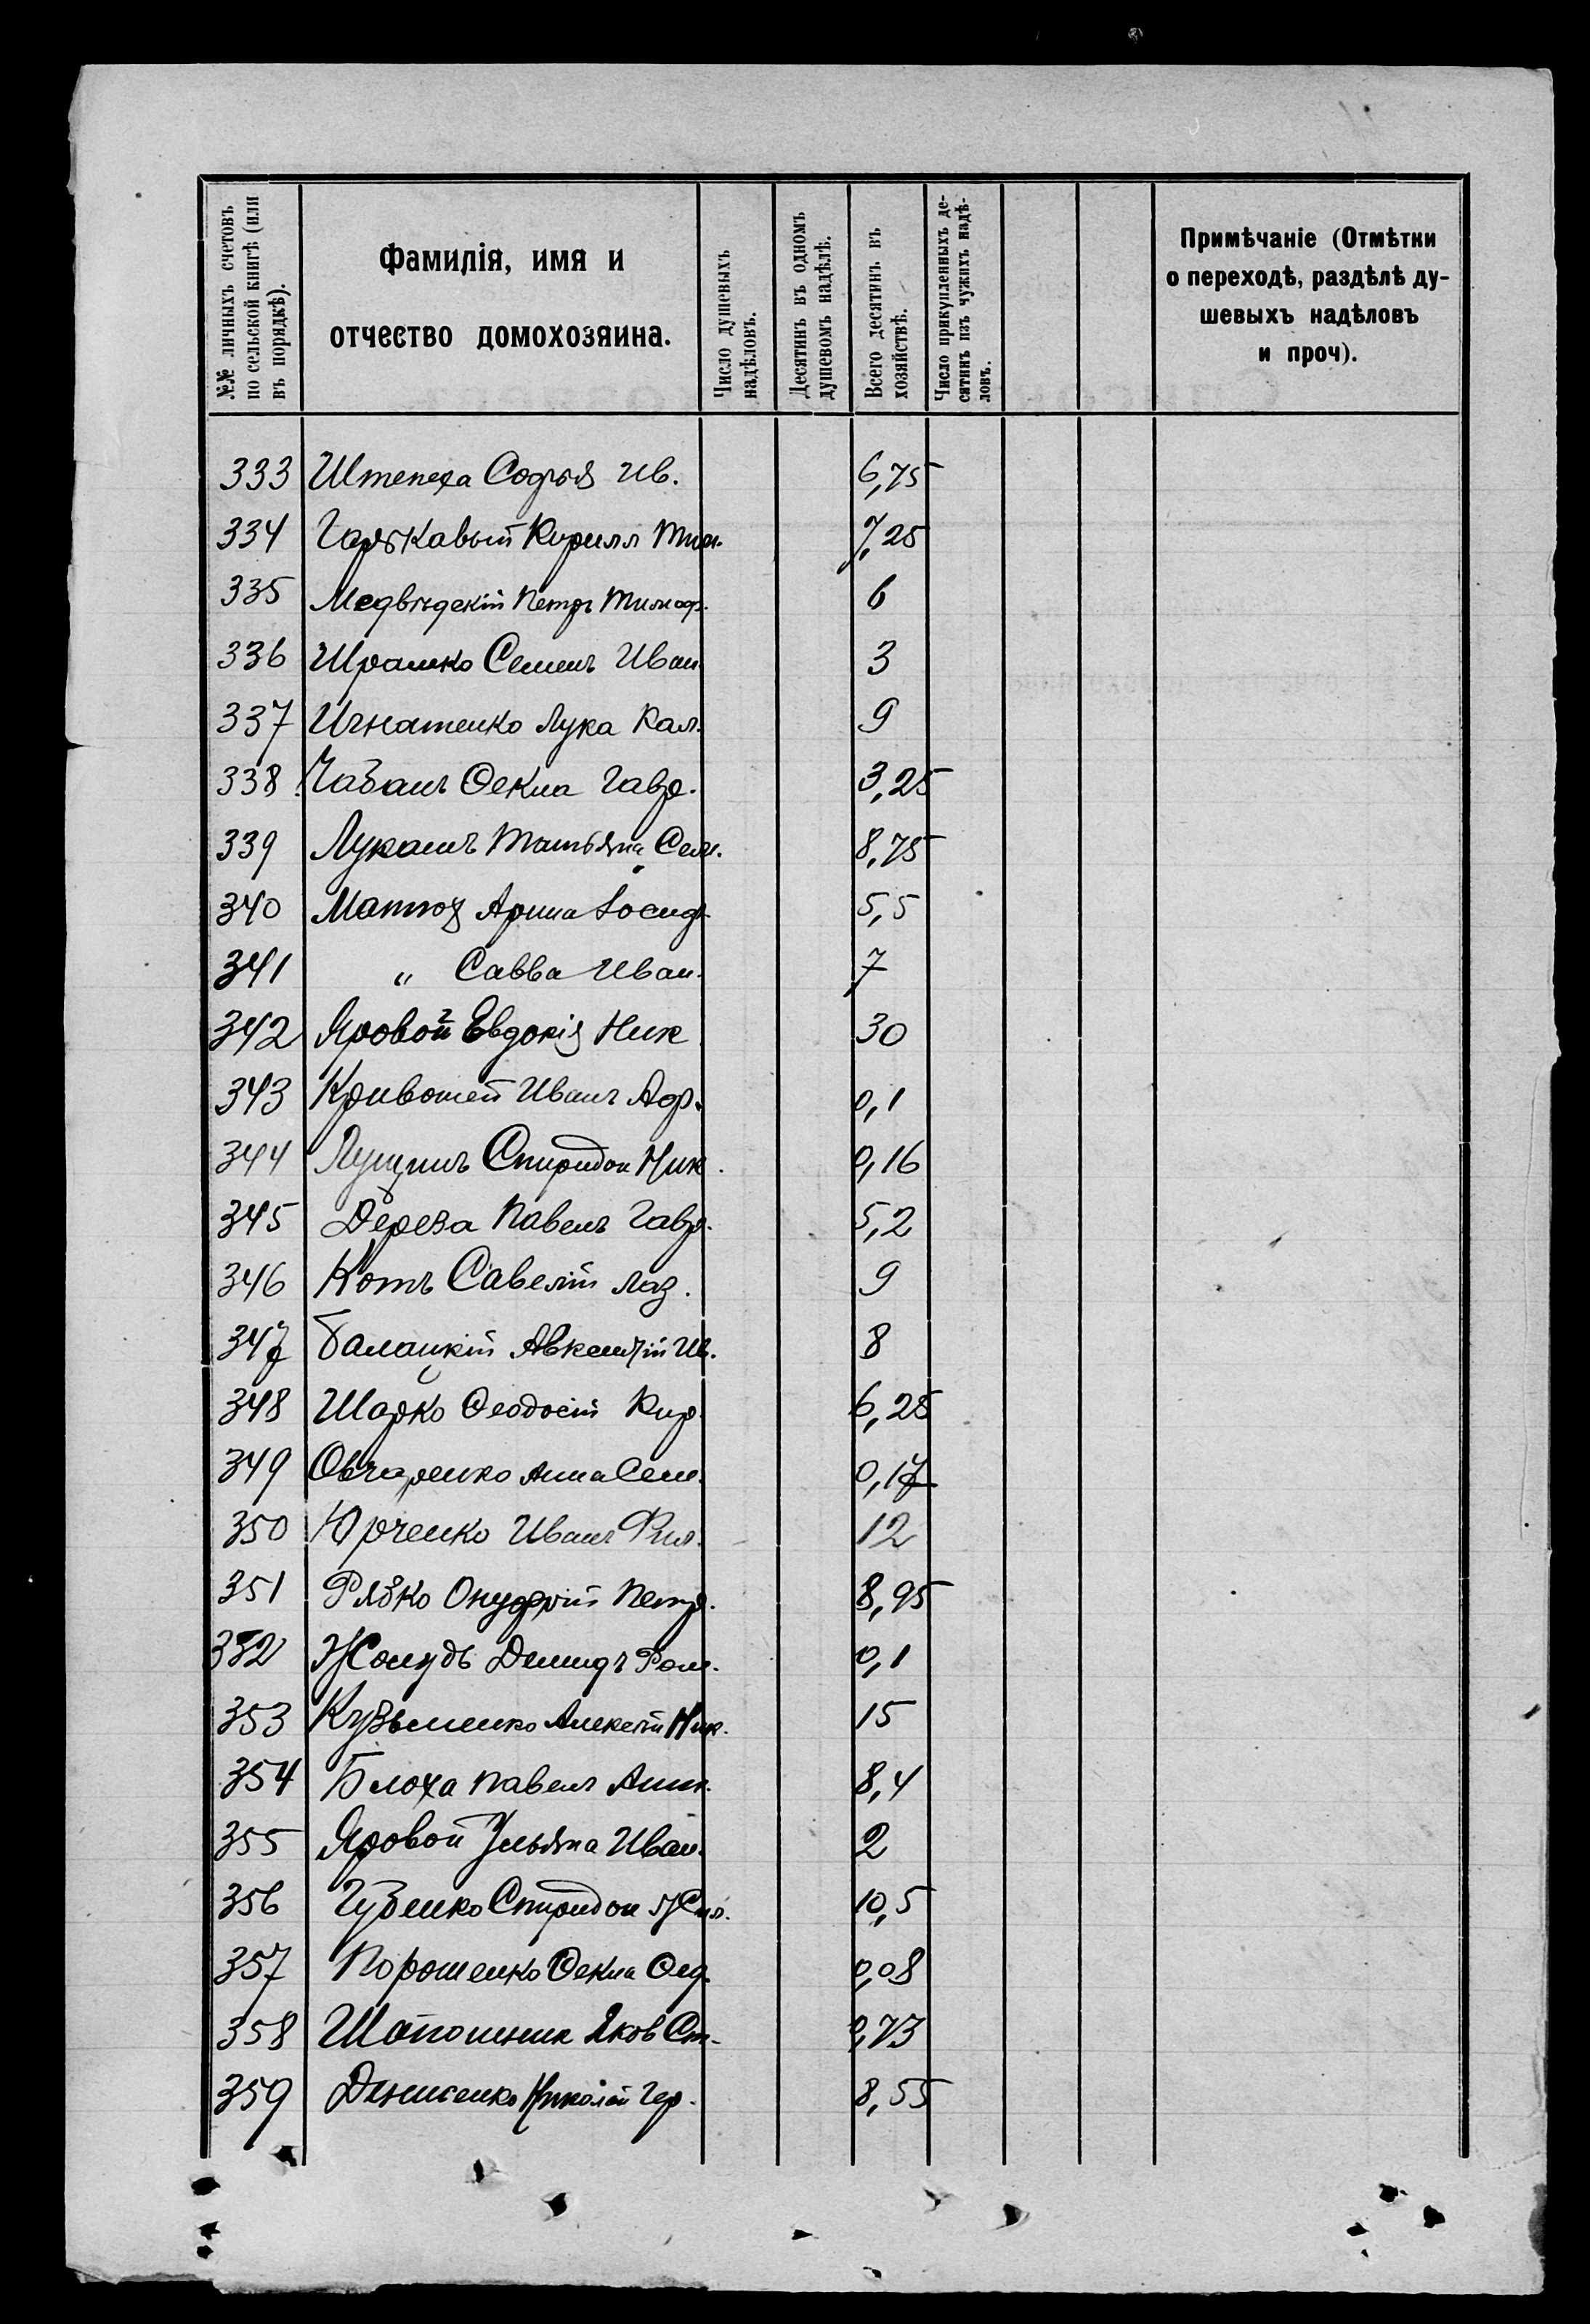 №№ личныхъ счетовъ
по сельской книгѣ (или
въ порядкѣ).
Фамилія, имя и
отчество домохозяина.
Число душевыхъ
надѣловъ.
Десятинъ въ одномъ
душевомъ надѣлѣ.
Всего десятинъ въ
хозяйствѣ.
Число прикупленныхъ де-
сятинъ изъ чужихъ надѣ-
ловъ.
Примѣчаніе (Отмѣтки
о переходѣ, раздѣлѣ ду-
шевыхъ надѣловъ
и проч).
333 Штепеха Софья Ив. 6,75
334 Гаркавый Кириллъ Тим. 7,25
335 Медвѣдскій Петръ Тимоф. 6
336 Шрамко Семенъ Иван 3
337 Игнатенко Лука Кал. 9
338 Чабанъ Ѳекла Гавр. 3,25
339 Лукашъ Татьяна Сем. 8,75
340 Матюх Арина Іосиф. 5,5
341 „ Савва Иван. 7
342 Яровой Евдокія Ник 30
343 Кривошей Иванъ Аф. 0,1
344 Лущикъ Спиридон Ник. 0,16
345 Дереза Павелъ Гавр. 5,2
346 Котъ Савелій Лаз. 9
347 Балацкій Авкентій Ив. 8
348 Шарко Ѳеодосій Кир. 6,25
349 Овчаренко Анна Сем. 0,17
350 Юрченко Иванъ Фил. 12
351 Рябко Онуфрій Петр. 8,95
352 Жолудь Демидъ Ром. 0,1
353 Кузьменко Алексѣй Ник. 15
354 Блоха Павелъ Аким. 8,4
355 Яровой Ульяна Иван. 2
356 Губенко Спиридон 10,5
357 Порошенко Ѳекла Ѳед. 0,08
358 Шапошник Яков Ст. 0,73
359 Денисенко Николай Гер. 8,55